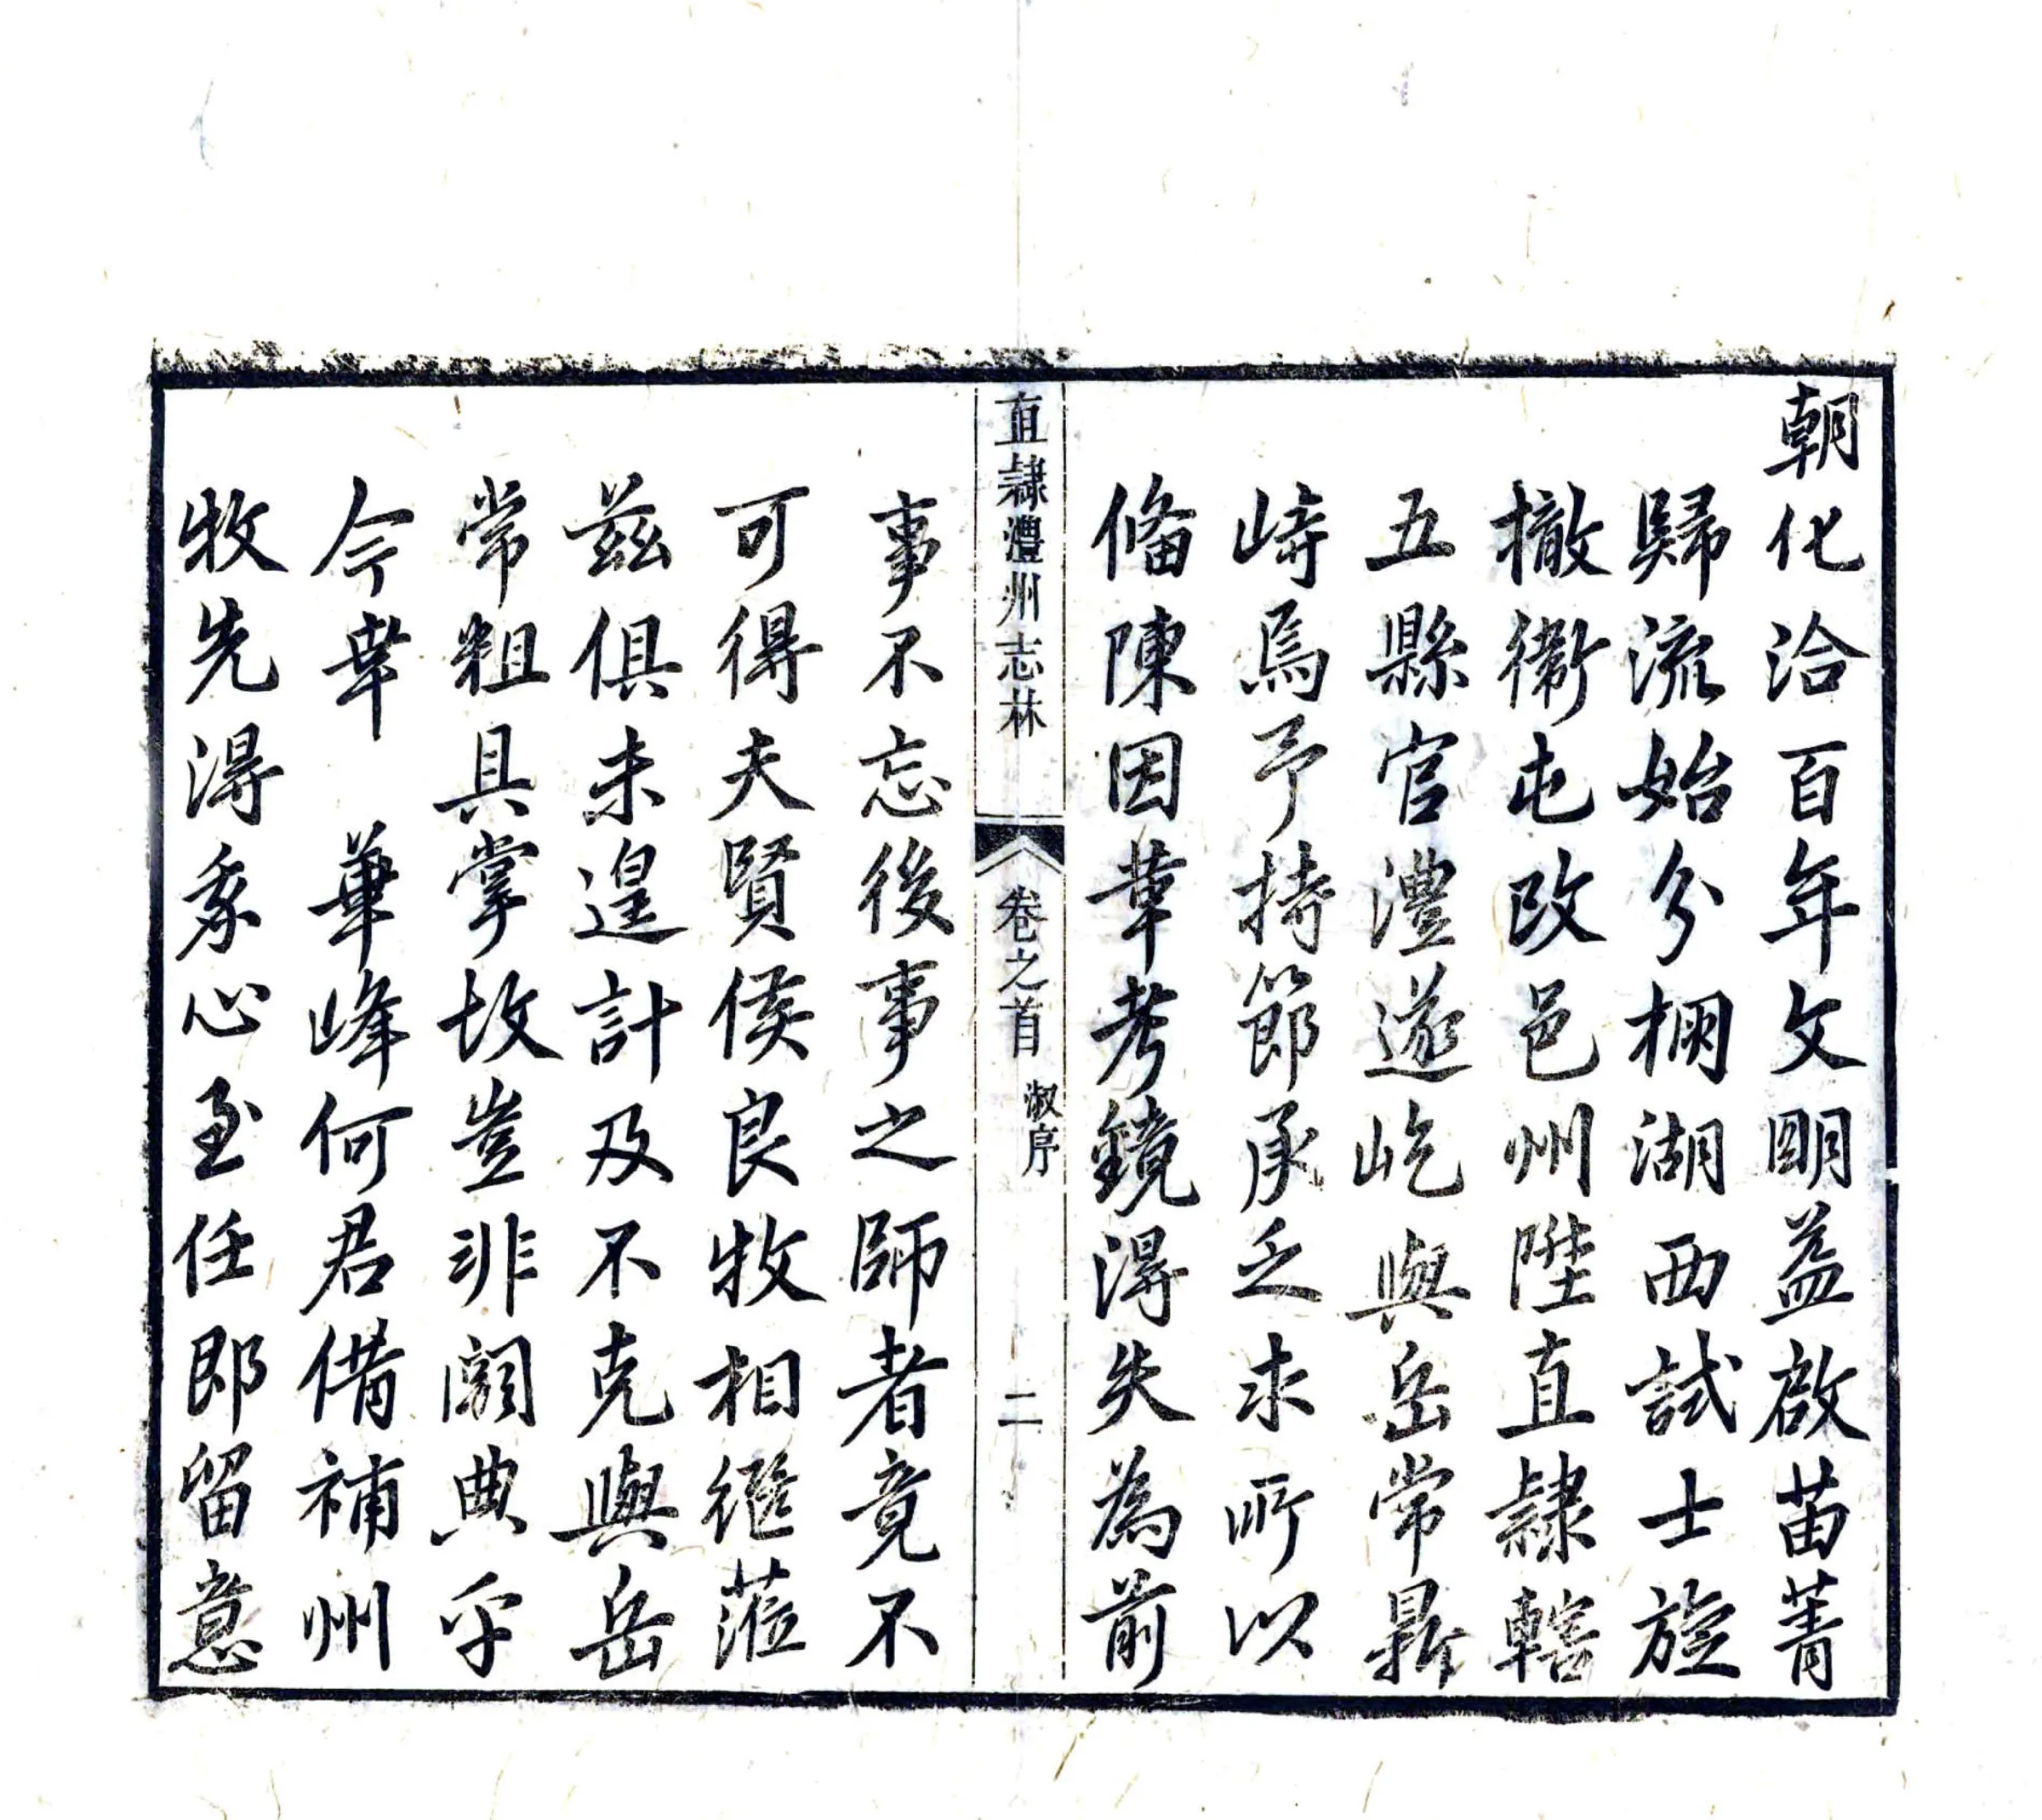 朝化洽百年文明益啟苗菁
歸流始分棚湖西試士旋
撤衛屯改邑州陞直隸轄
五縣官澧遂屹與岳常鼎
峙焉予持節承乏求所以
偹陳因革考鏡淂失為前
直隸澧州志林 卷之首 淑序 二
事不忘後事之師者竟不
可得夫賢侯良牧相繼蒞
茲俱未遑計及不克與岳
常粗具掌故豈非闕典乎
今幸 華峰何君偹補州
牧先淂我心至任即留意